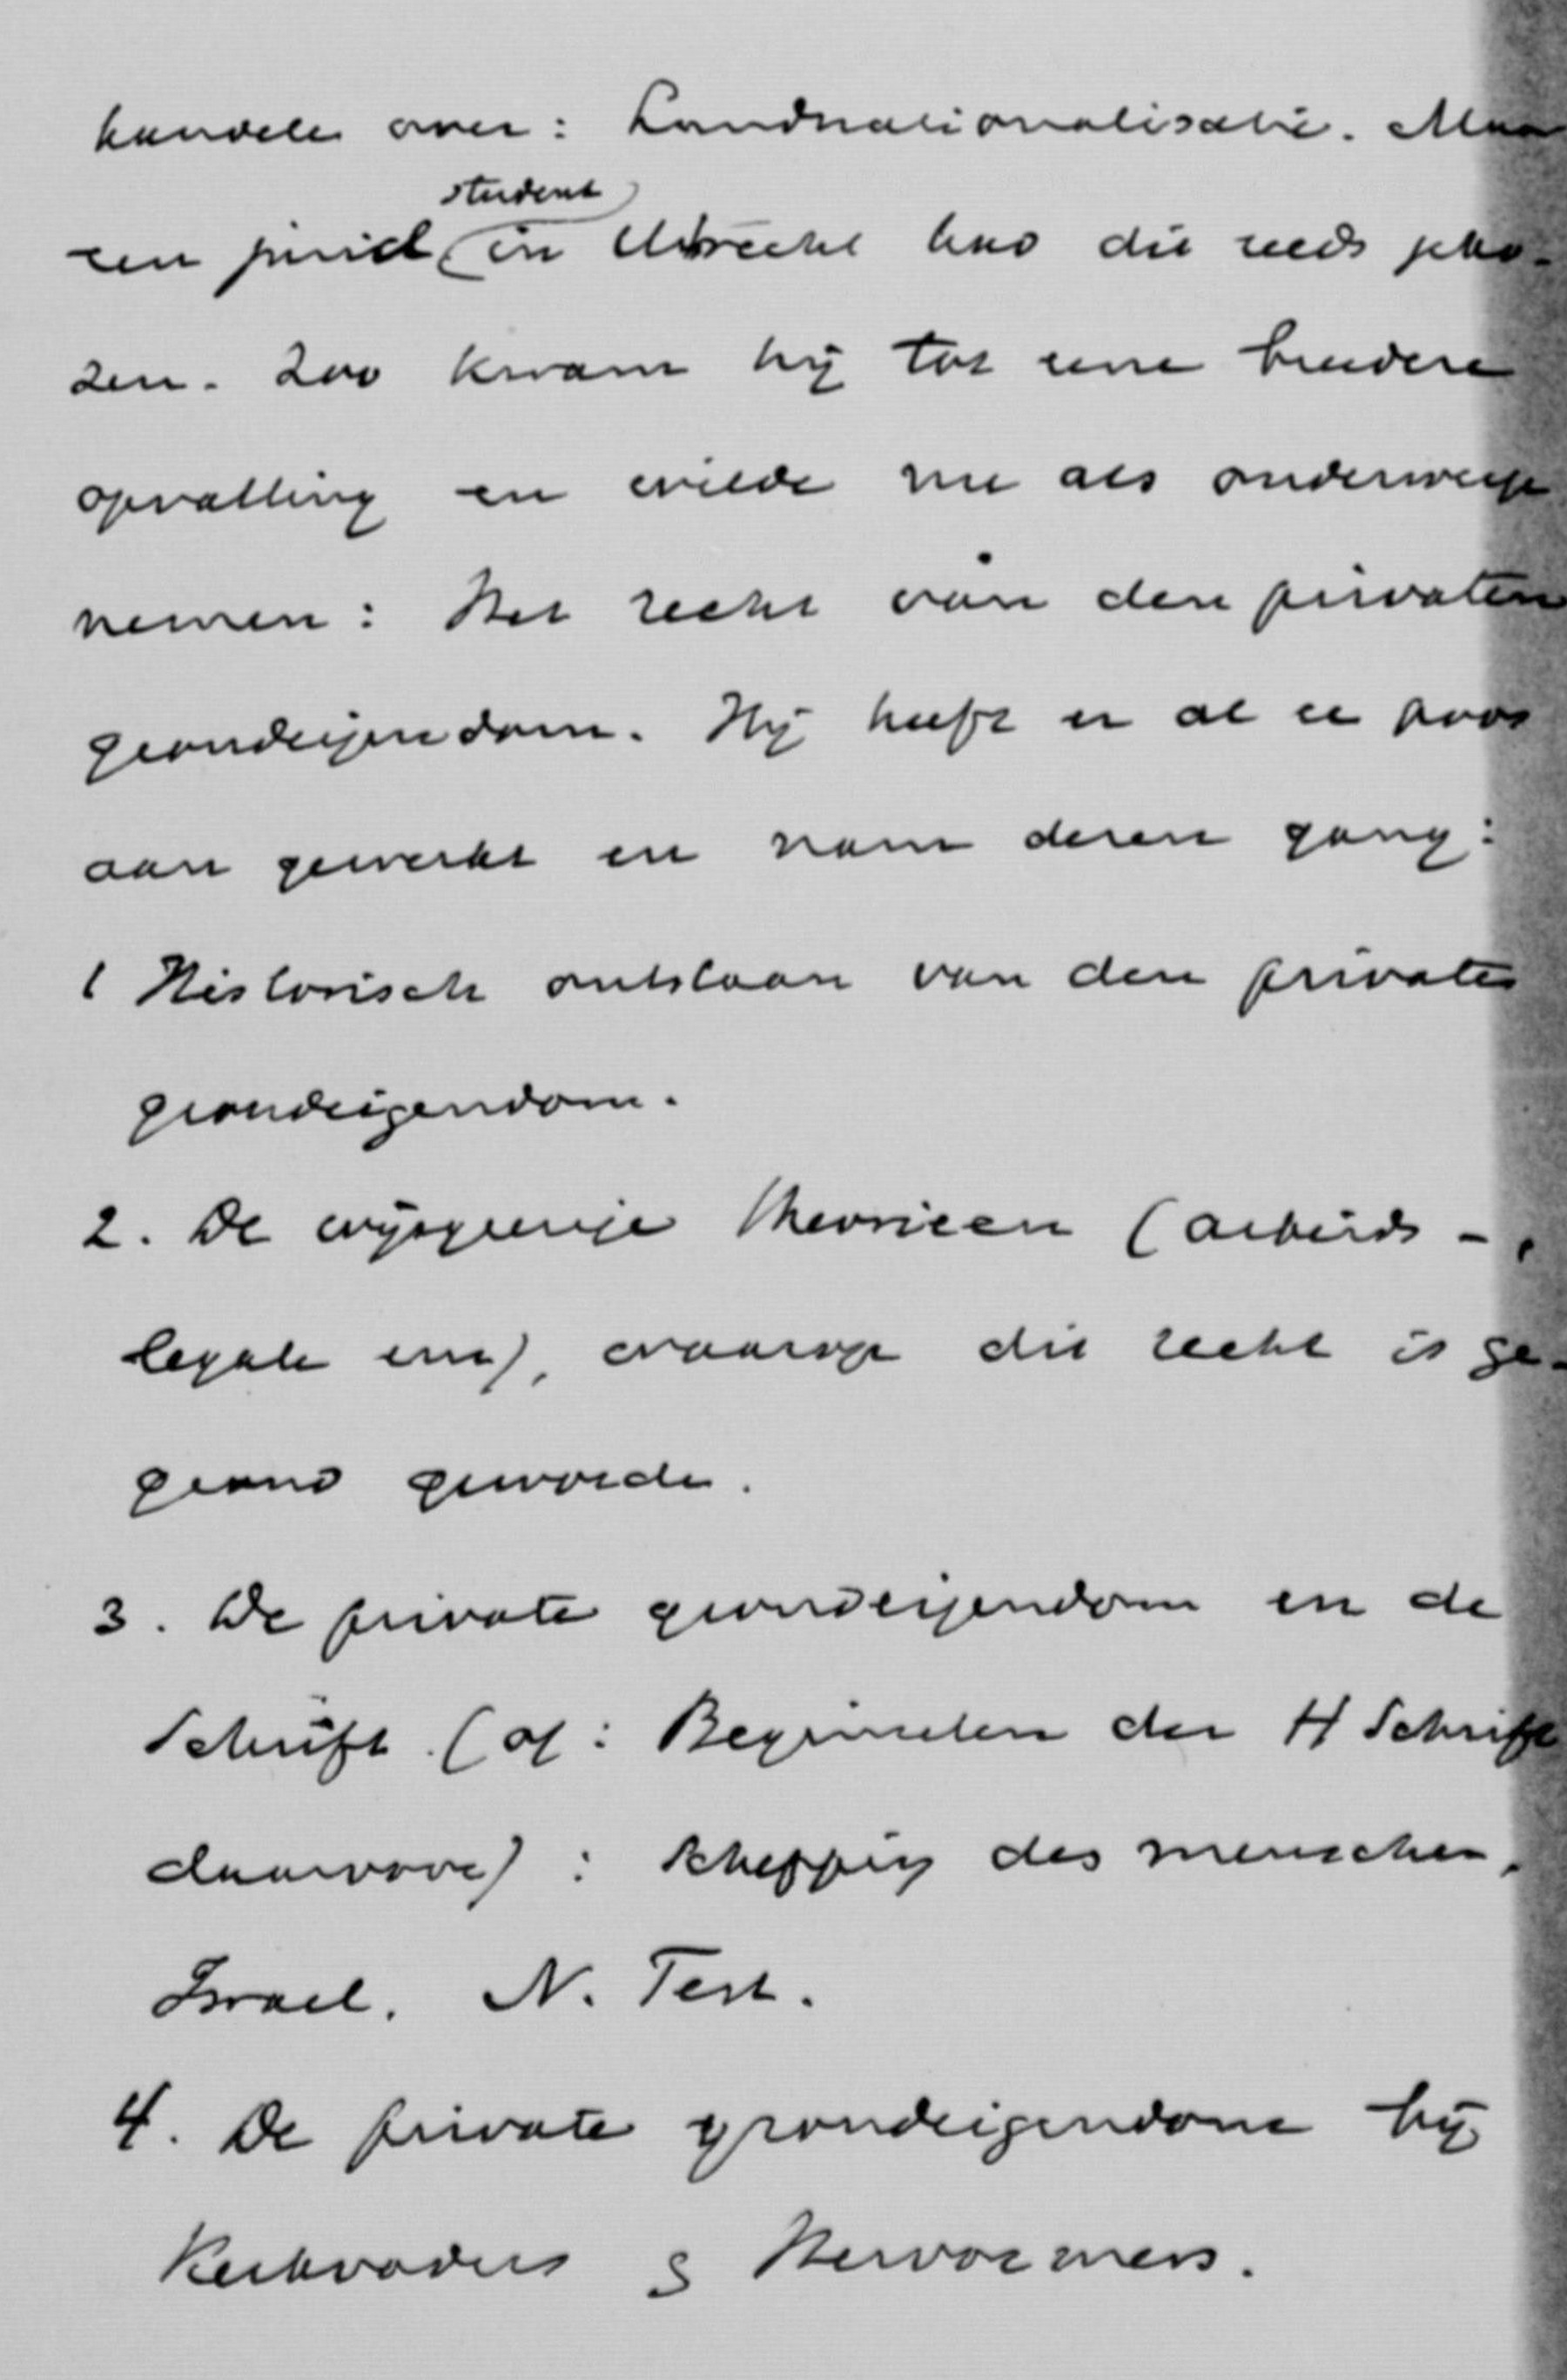 handelen over: Landnationalisatie. Maar
student
een jurid. in Utrecht had dit reeds geko-
zen. Zoo kwam hij tot eene breedere
opvatting en wilde nu als onderwerp
nemen: Het recht van den privaten
grondeigendom. Hij heeft er al een poos
aan gewerkt en nam dezen gang:
1 Historisch ontstaan van den privaten
grondeigendom.
2. De wijsgeerige theorieën (arbeids-,
legale enz), waarop dit recht is ge-
grond geworden.
3. De private grondeigendom en de
Schrift. (of: Beginselen der H Schrift
daarvoor): Schepping des menschen,
Israel. N. Test.
4. De private grondeigendom bij
Kerkvaders & Hervormers.